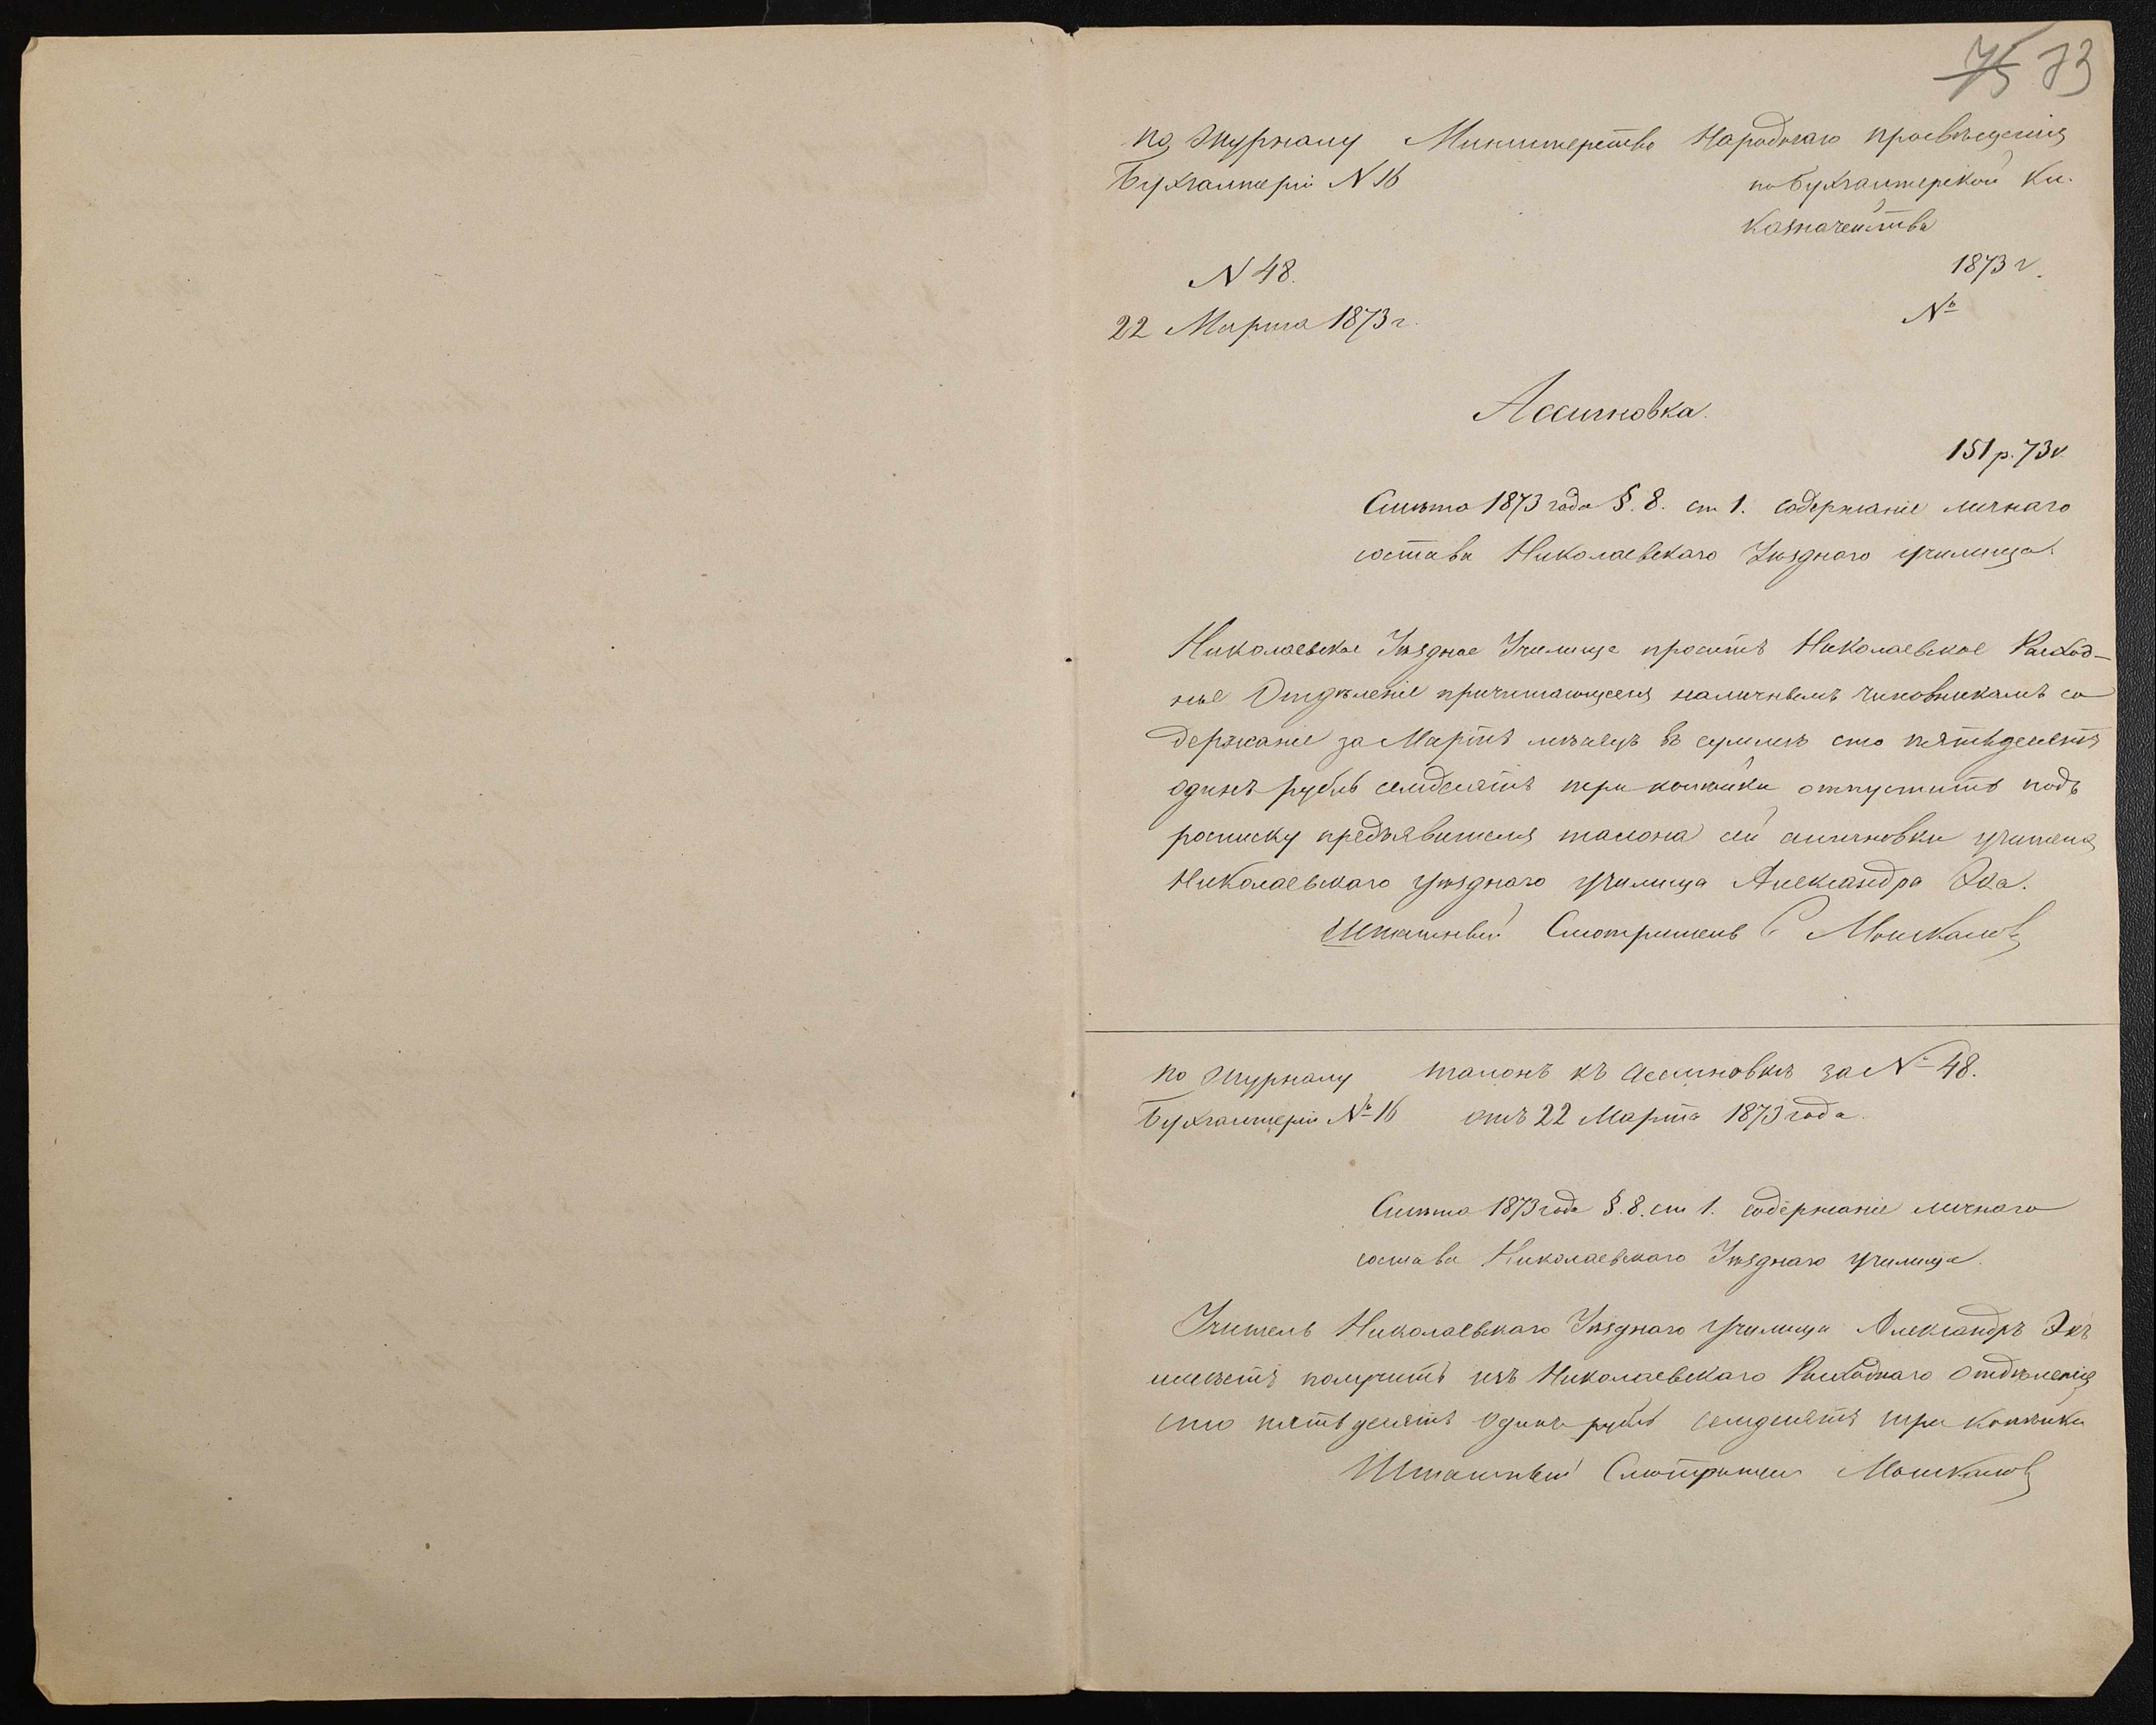 75 73
по журналу Министерство Народнаго просвѣщенія
Бухгалтеріи N 16 по бухгалтерской кн.
Казначейства
N 48. 1873 г.
22 Марта 1873 г. №
Ассигновка.
151 р. 73 к.
Смѣта 1873 года §. 8. ст 1. содержаніе личнаго
состава Николаевскаго Уѣзднаго училища.
Николаевское Уѣздное Училище проситъ Николаевское Расход-
ное Отдѣленіе причитающееся наличнымъ чиновникамъ со
держаніе за Мартъ мѣсяцъ въ суммѣ сто пятьдесятъ
одинъ рубль семдесятъ три копѣйки отпустить подъ
росписку предъявителя талона сей ассигновки учителя
Николаевскаго уѣзднаго училища Александра Эка.
Штатный Смотритель С Мошкалов
по журналу талонъ къ ассигновкѣ за № 48.
Бухгалтеріи № 16 отъ 22 Марта 1873 года.
Смѣта 1873 года §. 8. ст 1. содержаніе личнаго
состава Николаевскаго Уѣзднаго училища.
Учитель Николаевскаго Уѣзднаго училища Александръ Экъ
имѣетъ получить изъ Николаевскаго Расходнаго Отдѣленія
сто пятьдесятъ одинъ рубль семдесятъ три копѣйки
Штатный Смотритель Мошкалов